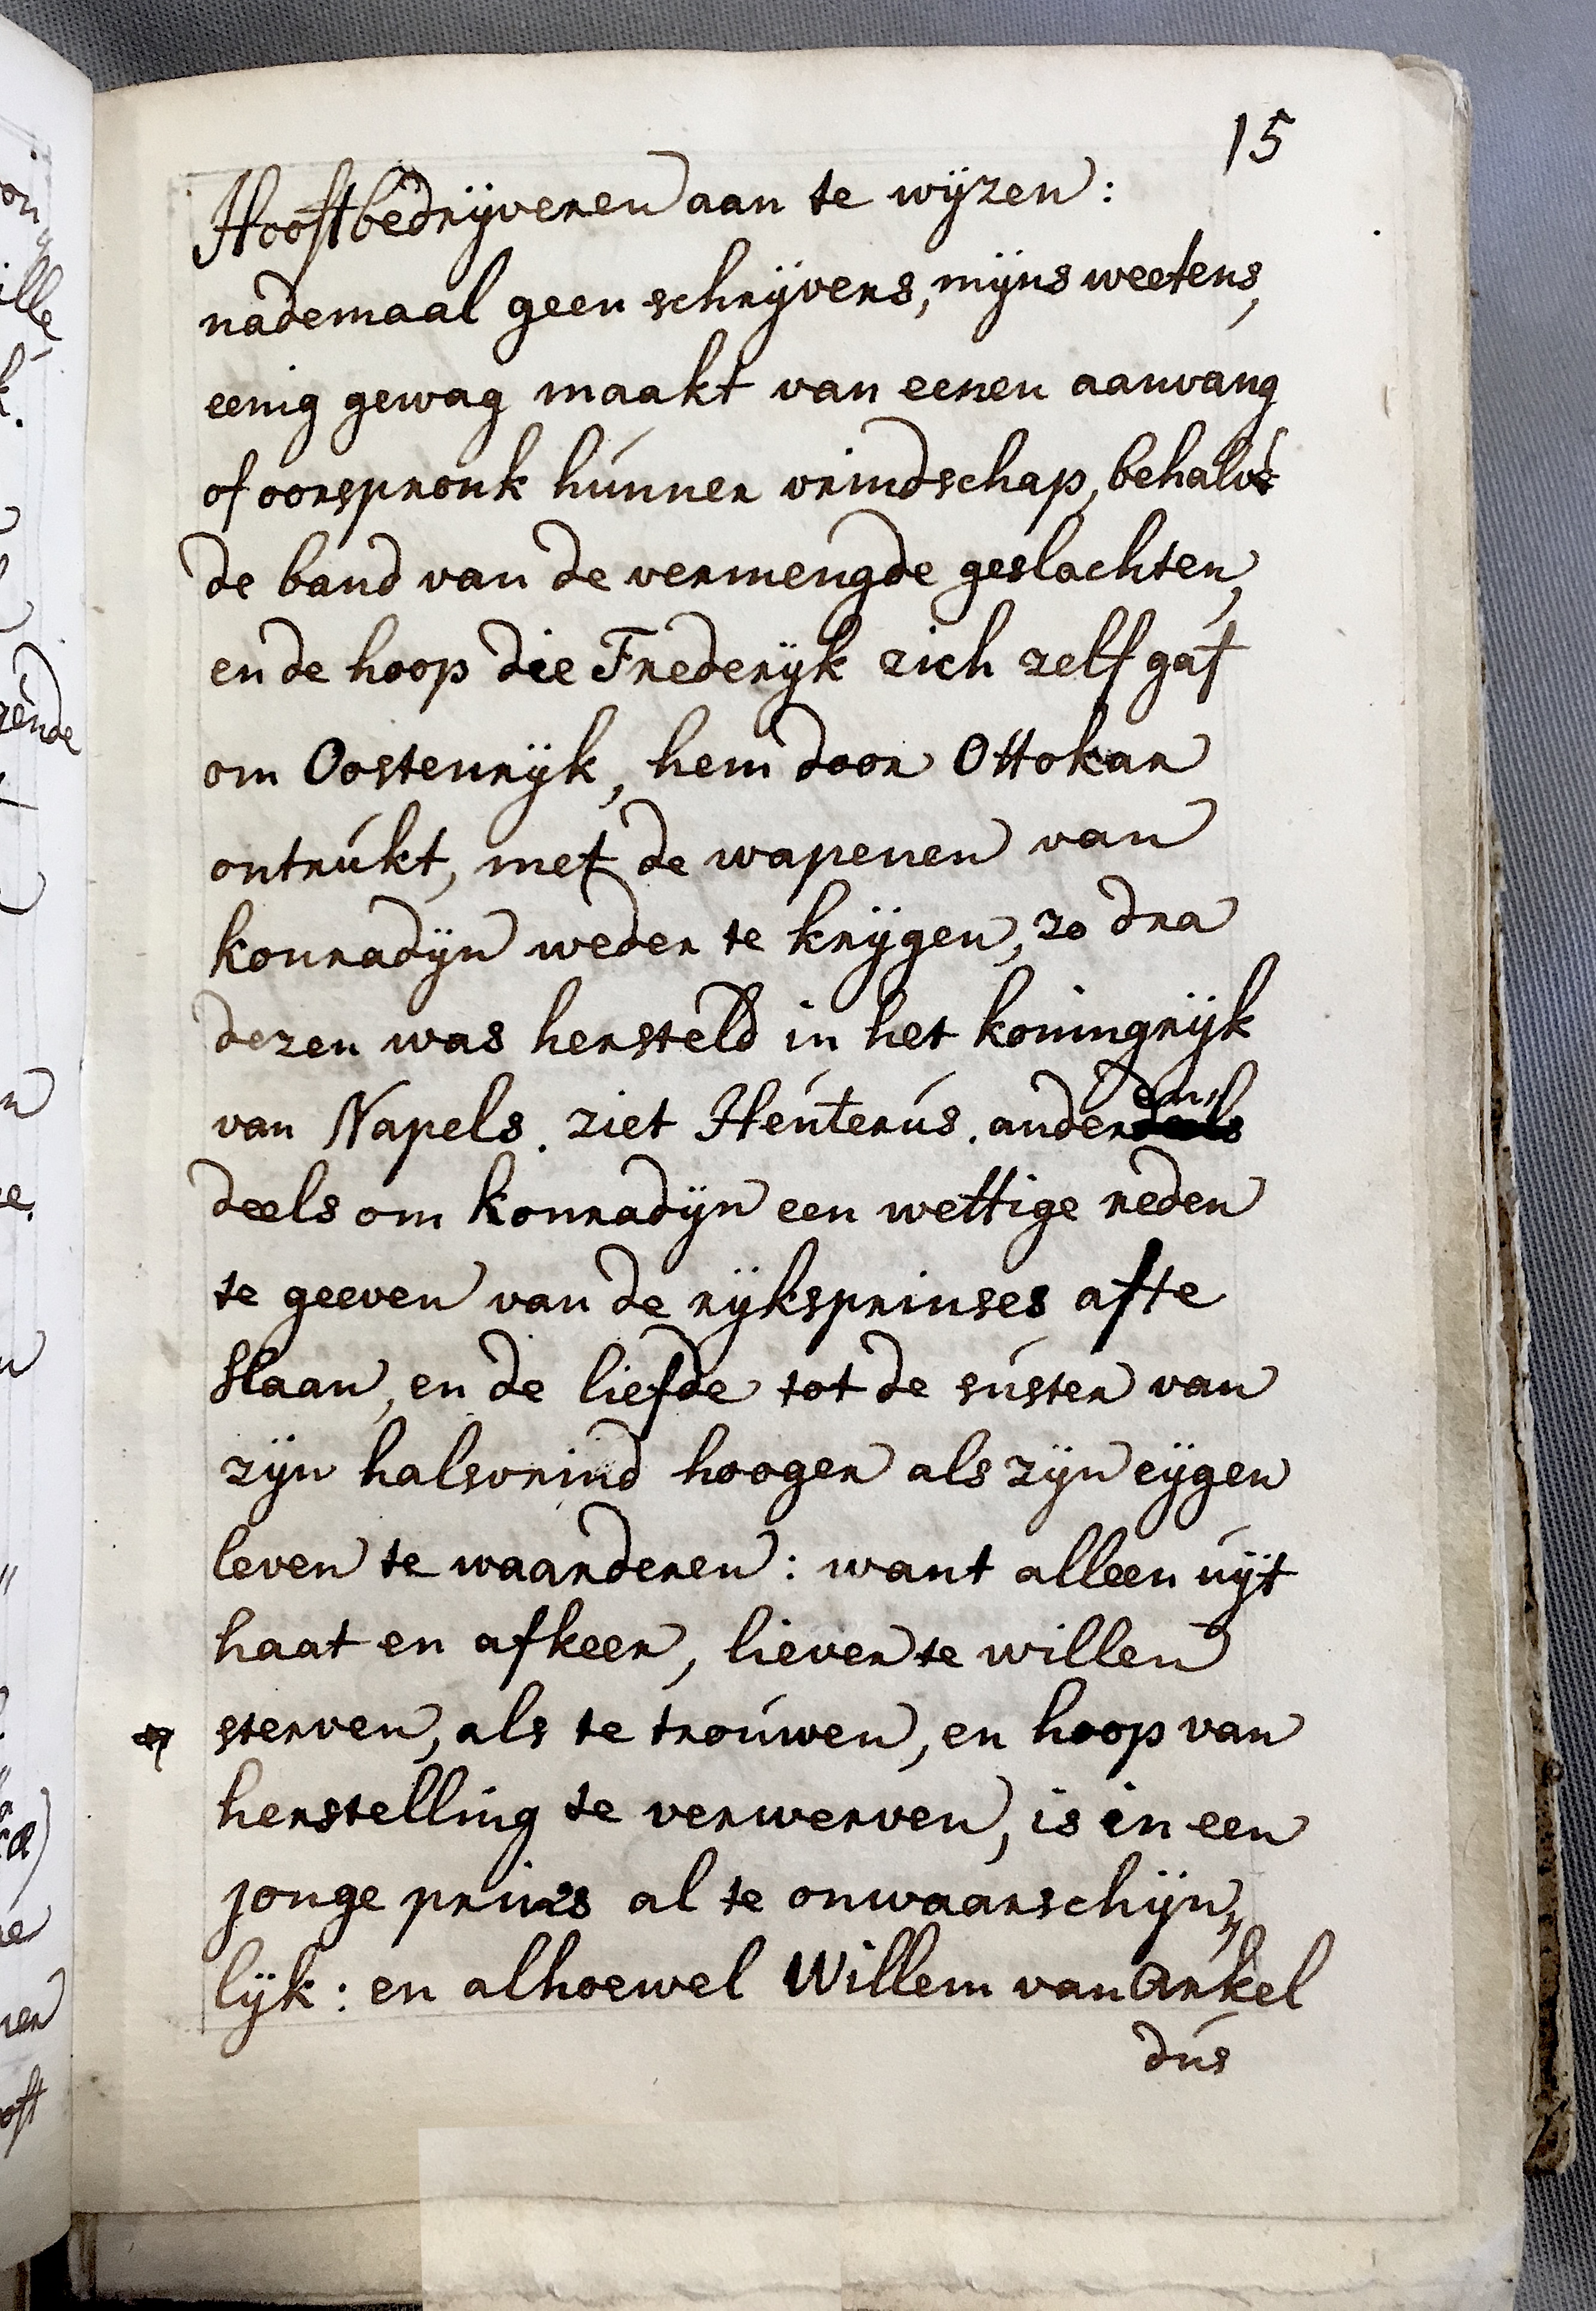 15
Hooftbedrijveren aan te wijzen:
nademaal geen schrijvers, mijns weetens,
eenig gewag maakt van eenen aanvang
of oorspronk húnner vrindschap, behalve
de band van de vermengde geslachten,
en de hoop die Frederijk zich zelf gaf
om Oostenrijk, hem door Ottokar
ontrúkt, met de wapenen van
konradijn weder te krijgen, zo dra
dezen was hersteld in het koningrijk
van Napels. ziet Heúterús. anders
deels om konradijn een wettige reden
te geeven van de rijksprinses af te
slaan, en de liefde tot de súster van
zijn halsvrind hooger als zijn eijgen
leven te waarderen: want alleen úijt
haat en afkeer, liever te willen
sterven, als te troúwen, en hoop van
herstelling te verwerven, is in een
jonge prins al te onwaarschijn„
lijk: en alhoewel Willem van Arkel
dús